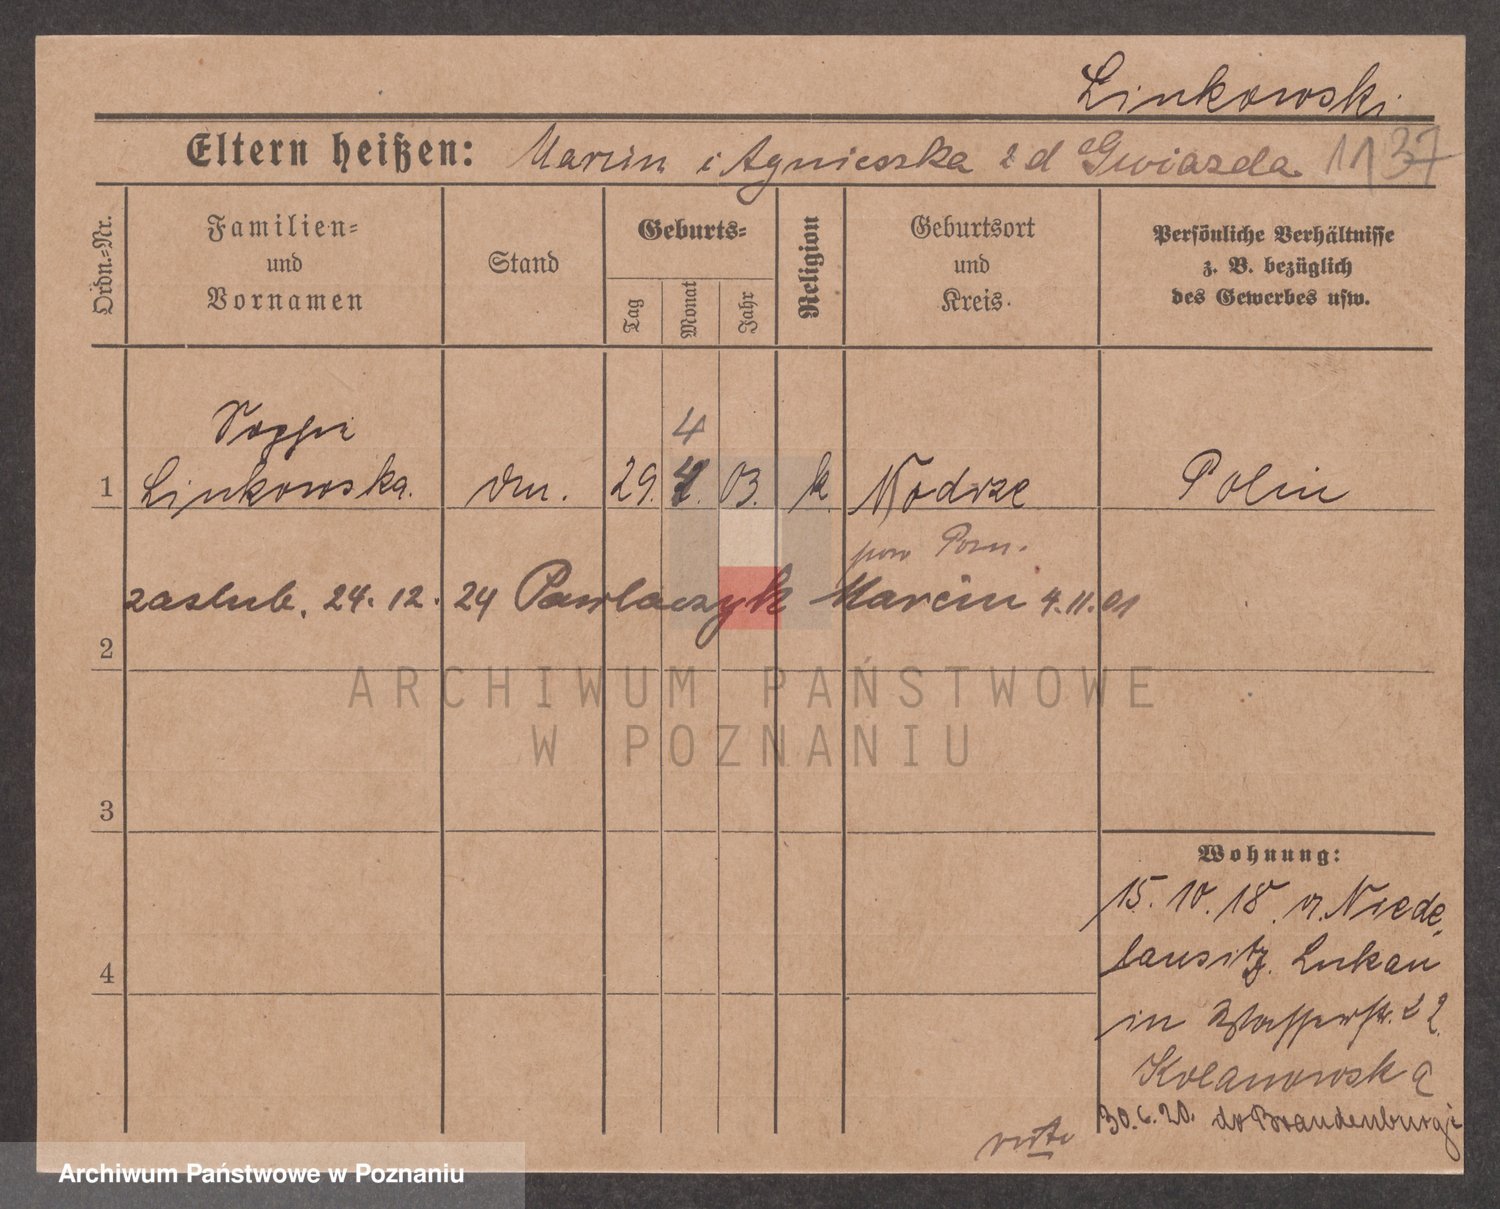 Linkowski
Eltern heißen: Marcin i Agnieszka z d Gwiazda 1137
Ordn.-Nr.
Familien-
und
Vornamen
Stand
Geburts-
Tag
Monat
Jahr
Religion
Geburtsort
und
Kreis.
Persönliche Verhältnisse
z. B. bezüglich
des Gewerbes usw.
4
1 Linkowska. 29. 4. 03. k. Modrze Polin
pow Pozn.
zaslub. 24. 12. 24 Pawlaczyk Marcin 4.11.01
2
3
4
Wohnung:
15. 10. 18. n. Niede
lausitz. Lukau
in Wasserstr. 22
30.6.20. do Brandenburgji
verte
ARCHIWUM PAŃSTWOWE
W POZNANIU
Archiwum Państwowe w Poznaniu